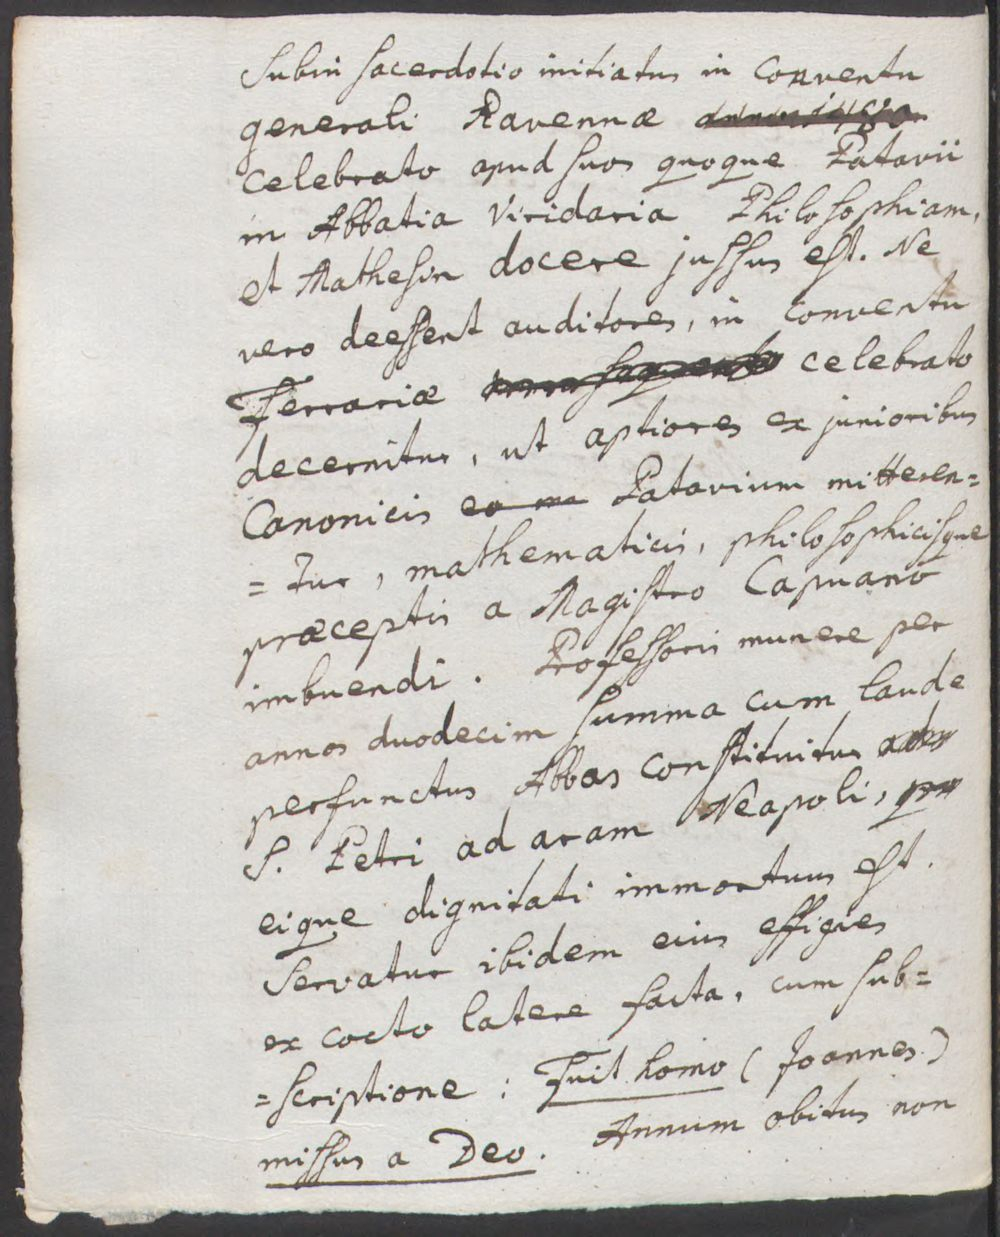 Subin sacerdotio initiatus in Conventu
generali Ravennæ
celebrato apud suos quoque Patavii
in Abbatia Viridaria Philosophiam,
et Mathesin docere jussus est. Ne
vero deessent auditores, in Conventu
Ferrariæ celebrato
decernitur, ut aptiores ex junioribus
Canonicis eo Patavium mitteren=
=tur, mathematicis, philosophicisque
præceptis a Magistro Capuano
imbuendi. Professoris munere per
annos duodecim summa cum laude
perfunctus Abbas constituitur
S. Petri ad aram Neapoli,
eique dignitati immortuus est.
Servatur ibidem eius effigies
ex cocto latere facta, cum sub=
=scriptione: Fuit homo (Joannes)
missus a Deo. Annum obitus non